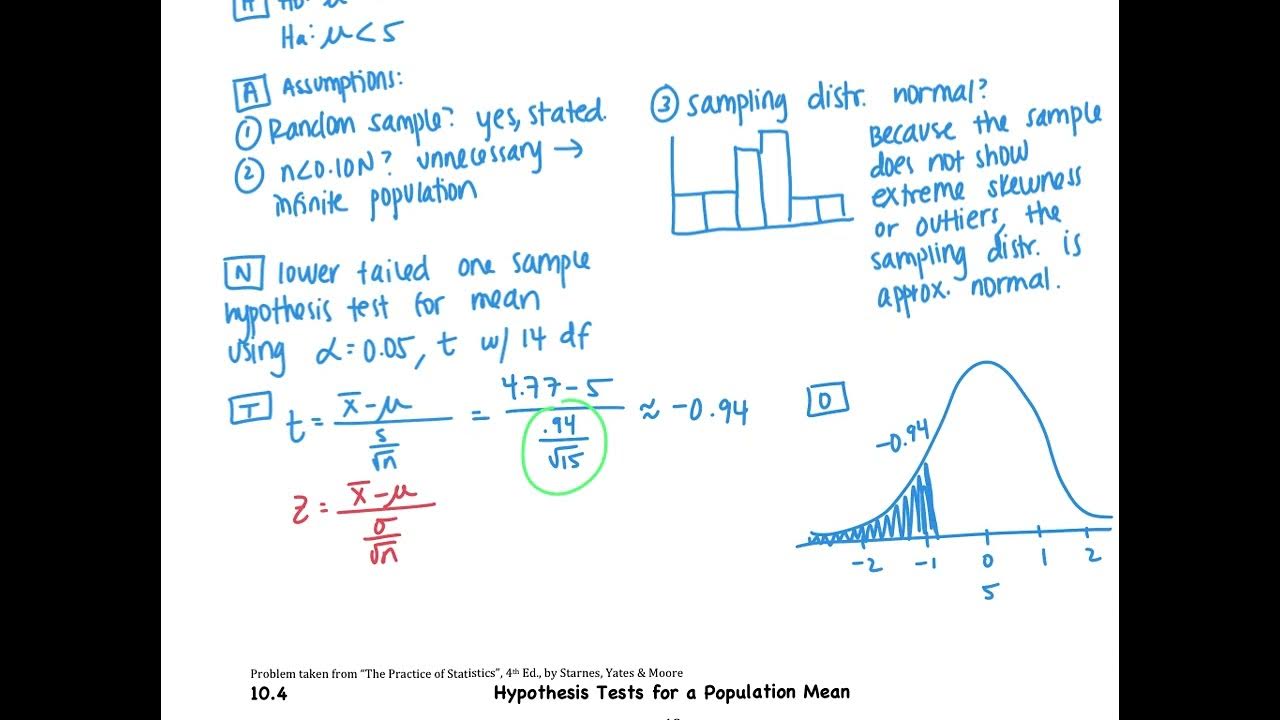 H Ho: μ
Ha: μ < 5
A Assumptions:
① Random sample? yes, stated.
② n<0.10N? unnecessary →
infinite population
③ sampling distr. normal?
Because the sample
does not show
extreme skewness
or outliers, the
sampling distr. is
approx. normal.
N lower tailed one sample
hypothesis test for mean
using α=0.05, t w/ 14 df
T t = (x̄-μ)/(s/√n) = (4.77-5)/(.94/√15) ≈ -0.94
z = (x̄-μ)/(σ/√n)
O
-0.94
-2 -1 0 1 2
5
Problem taken from “The Practice of Statistics”, 4th Ed., by Starnes, Yates & Moore
10.4 Hypothesis Tests for a Population Mean